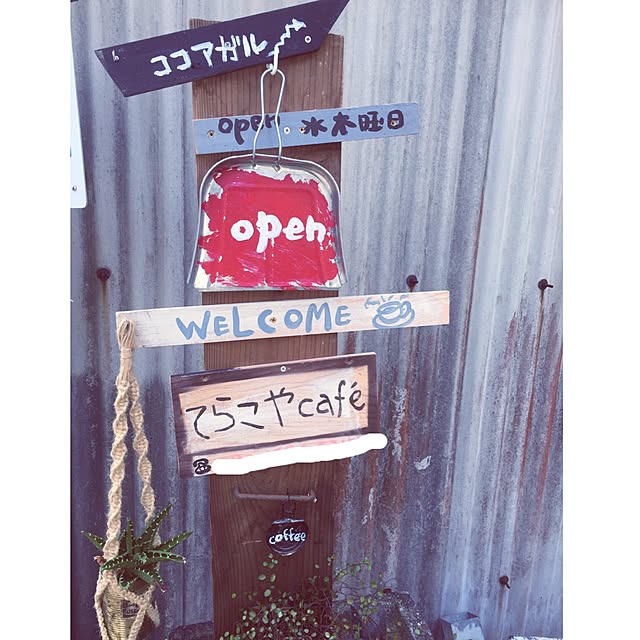 ココアガル
open 水木曜日
open
WELCOME
てらこやcafé
☎
coffee